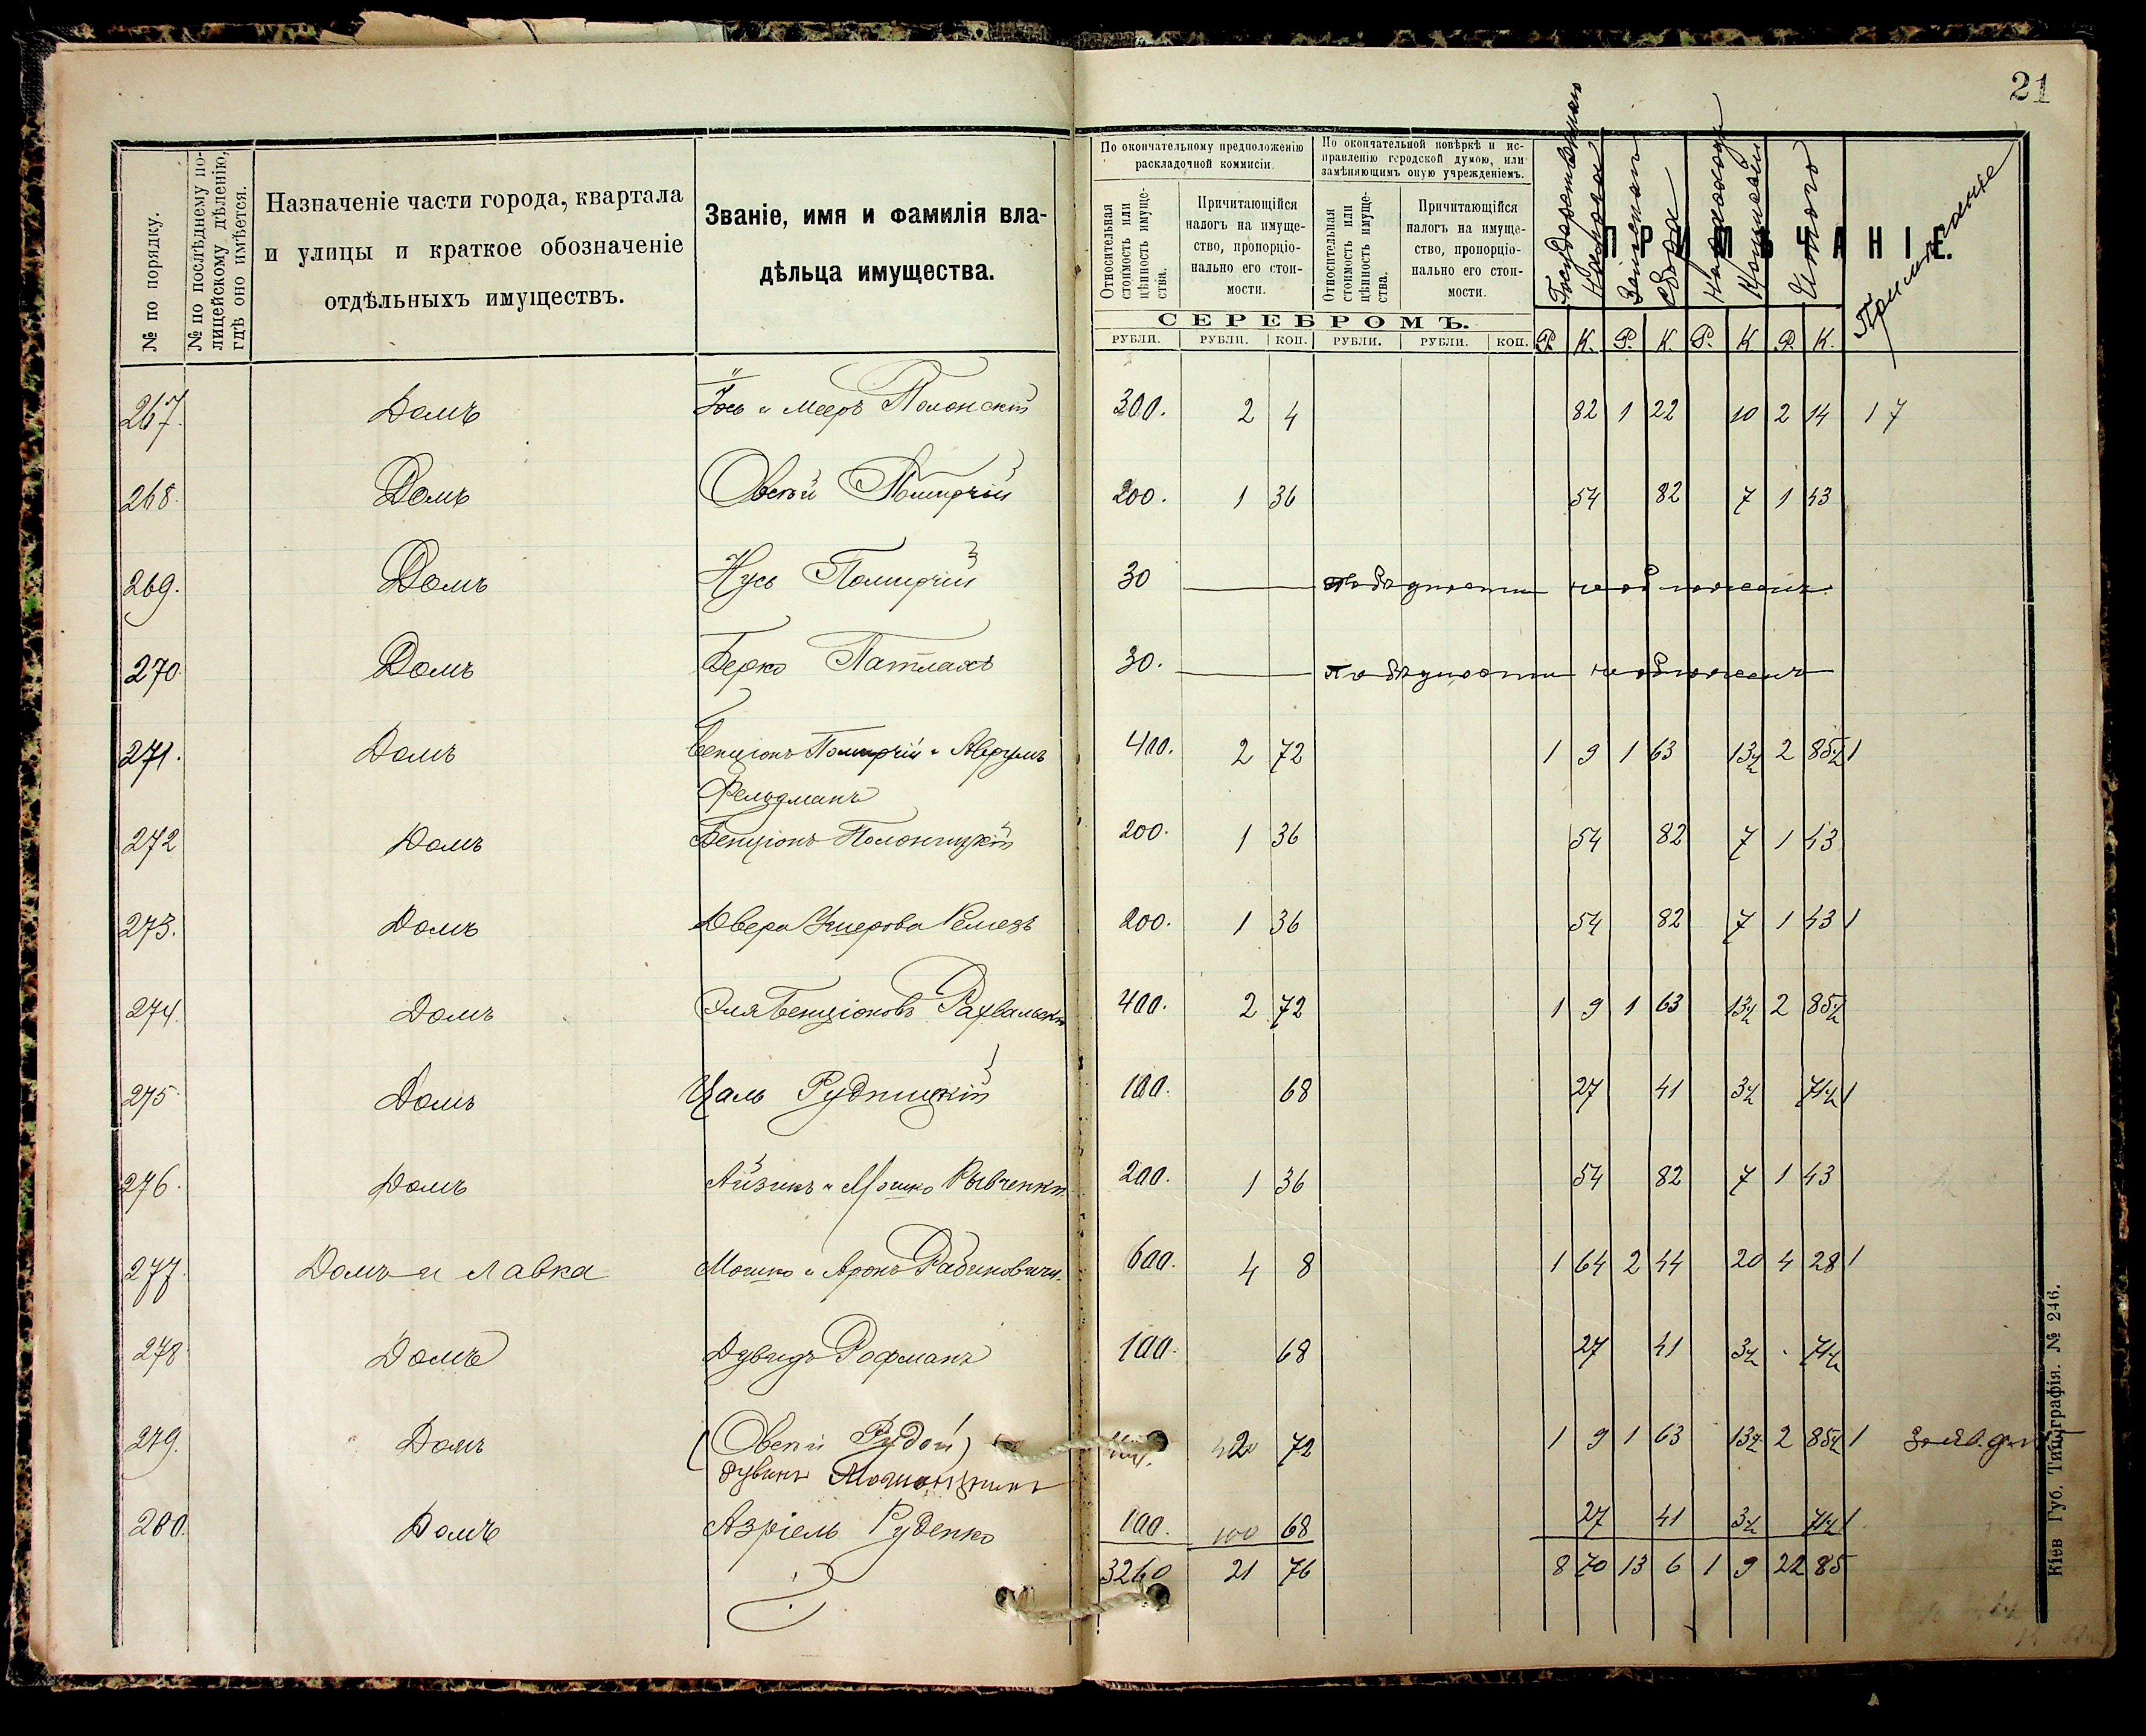 21
№ по порядку.
№ по послѣднему полицейскому дѣленію, гдѣ оно имѣется.
Назначеніе части города, квартала
и улицы и краткое обозначеніе
отдѣльныхъ имуществъ.
Званіе, имя и фамилія вла-
дѣльца имущества.
По окончательному предположенію
раскладочной коммисіи.
По окончательной повѣркѣ и ис-
правленію городской думою, или
замѣняющимъ оную учрежденіемъ.
Относительная стоимость или цѣнность имущества.
Причитающійся
налогъ на имуще-
ство, пропорціо-
нально его стои-
мости.
Относительная стоимость или цѣнность имущества.
Причитающійся
налогъ на имуще-
ство, пропорціо-
нально его стои-
мости.
ПРИМѢЧАНІЕ.
Итого
Примечание
СЕРЕБРОМЪ.
РУБЛИ. РУБЛИ. КОП. РУБЛИ. РУБЛИ. КОП. Р. К. Р. К. Р. К Р. К.
267. Домъ Іось и Мееръ Полонскій 300. 2 4 82 1 22 10 2 14 1 7
268. Домъ Овсѣй 200. 1 36 54 82 7 1 43
269. Домъ Нусь 30 По бѣдности не обложенъ
270. Домъ Берко Патлахъ 30. По бѣдности не обложенъ
271. Домъ Бенціонъ и Аврумъ 400. 2 72 1 9 1 63 13½ 2 85½ 1
Фельдманъ
272 Домъ Бенціонъ 200. 1 36 54 82 7 1 43
273. Домъ Двера Ушерова Ремезъ 200. 1 36 54 82 7 1 43 1
274. Домъ Эля Бенціоновъ Рахвальскій 400. 2 72 1 9 1 63 13½ 2 85½
275. Домъ Цаль Рудницкій 100. 68 27 41 3½ 71½ 1
276. Домъ Айзикъ и Мошко Рывченки 200. 1 36 54 82 7 1 43
277. Домъ и лавка Мошко и Аронъ Рабиновичи. 600. 4 8 1 64 2 44 20 4 28 1
278 Домъ Дувидъ Рофманъ 100. 68 27 41 3½ 71½
279. Домъ (Овсѣй Рудой) 2 72 1 9 1 63 13½ 2 85½ 1
280. Домъ Азріель Руденко 100. 100 68 27 41 3½ 71½ 1
3260 21 76 8 70 13 6 1 9 22 85
Кіев Губ. Типографія. № 246.